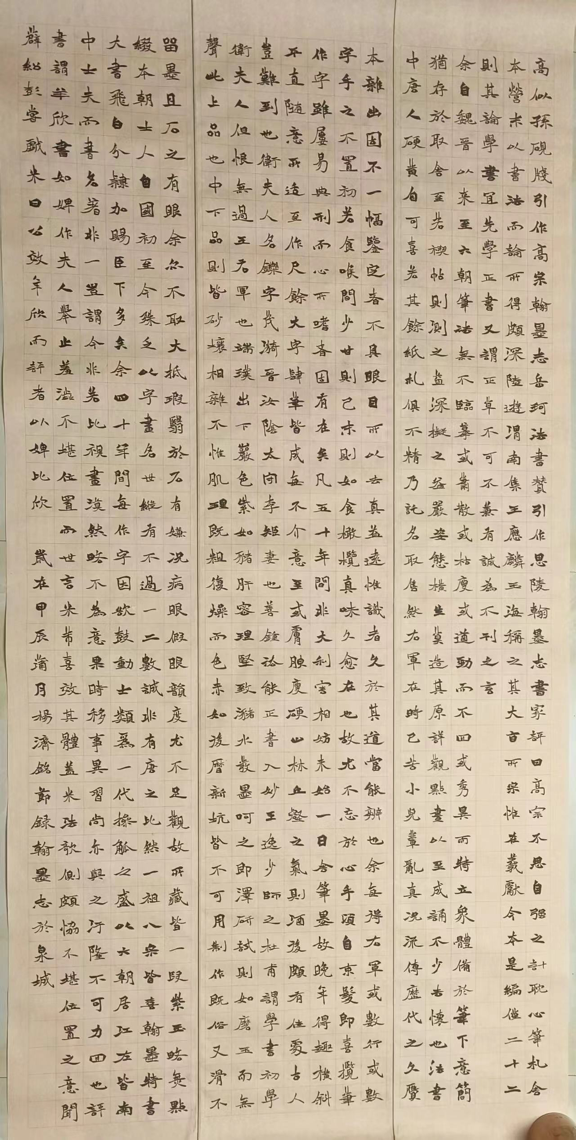 高似孫硯牋引作高宗翰墨志岳珂法書贊引作思陵翰墨志書家評曰高宗不思自強之計耽心筆札舍
本營末以書法而論所得頗深陸游渭南集王應麟玉海稱之其大旨所宗惟在羲獻今本是編僅二十二
則其論學書宜先學正書又謂正草不可不兼有誠為不刊之言
余自魏晉以來至六朝筆法無不臨摹或蕭散或枯瘦或遒勁而不回或秀異而特立衆體備於筆下意簡
猶存於取舍至若禊帖則測之益深擬之益嚴姿態橫生莫造其原詳觀點畫以至成誦不少去懷也法書
中唐人硬黃自可喜若其餘紙札俱不精乃託名取售然右軍在時已苦小兒輩亂真況流傳歷代之久贗
本雜出固不一幅鑒定者不具眼目所以去真益遠惟識者久於其道當能辨也余每得右軍或數行或數
字手之不置初若食喉間少甘則已末則如食橄欖真味久愈在也故尤不忘於心手頃自束髮即喜攬筆
作字雖屢易典刑而心所嗜者固有在矣凡五十年間非大利害相妨未始一日舍筆墨故晚年得趣橫斜
平直隨意所適至作尺餘大字肆筆皆成每不介意至或膚腴瘦硬山林丘壑之氣則酒後頗有佳處古人
豈難到也衛夫人名鑠字茂漪晉汝陰太守李矩妻也善鍾法能正書入妙王逸少師之杜甫謂學書初學
衛夫人但恨無過王右軍也端璞出下巖色紫如豬肝容理堅致瀦水發墨呵之即澤研試則如磨玉而無
聲此上品也中下品則皆砂壤相雜不惟肌理既粗復燥而色赤如後歷新坑皆不可用制作既俗又滑不
留墨且石之有眼余亦不取大抵瑕翳於石有嫌況病眼假眼韻度尤不足觀故所藏皆一段紫玉略無點
綴本朝士人自國初至今殊乏以字畫名世縱有不過一二數誠非有唐之比然一祖八宗皆喜翰墨特書
大書飛白分隸加賜臣下多矣余四十年間每作字因欲鼓動士類為一代操觚之盛以六朝居江左皆南
中士夫而書名著非一豈謂今非若比視書漠然略不為意果時移事異習尚亦與之汙隆不可力回也評
書謂羊欣書如婢作夫人舉止羞澀不堪位置而世言米芾喜效其體蓋米法欹側頗協不堪位置之意聞
薛紹彭嘗戲米曰公效羊欣而評者以婢比欣 歲在甲辰蒲月楊濟銘節錄翰墨志於泉城